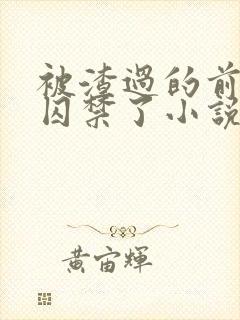 被渣過的前
囚禁了小說
黃宙輝